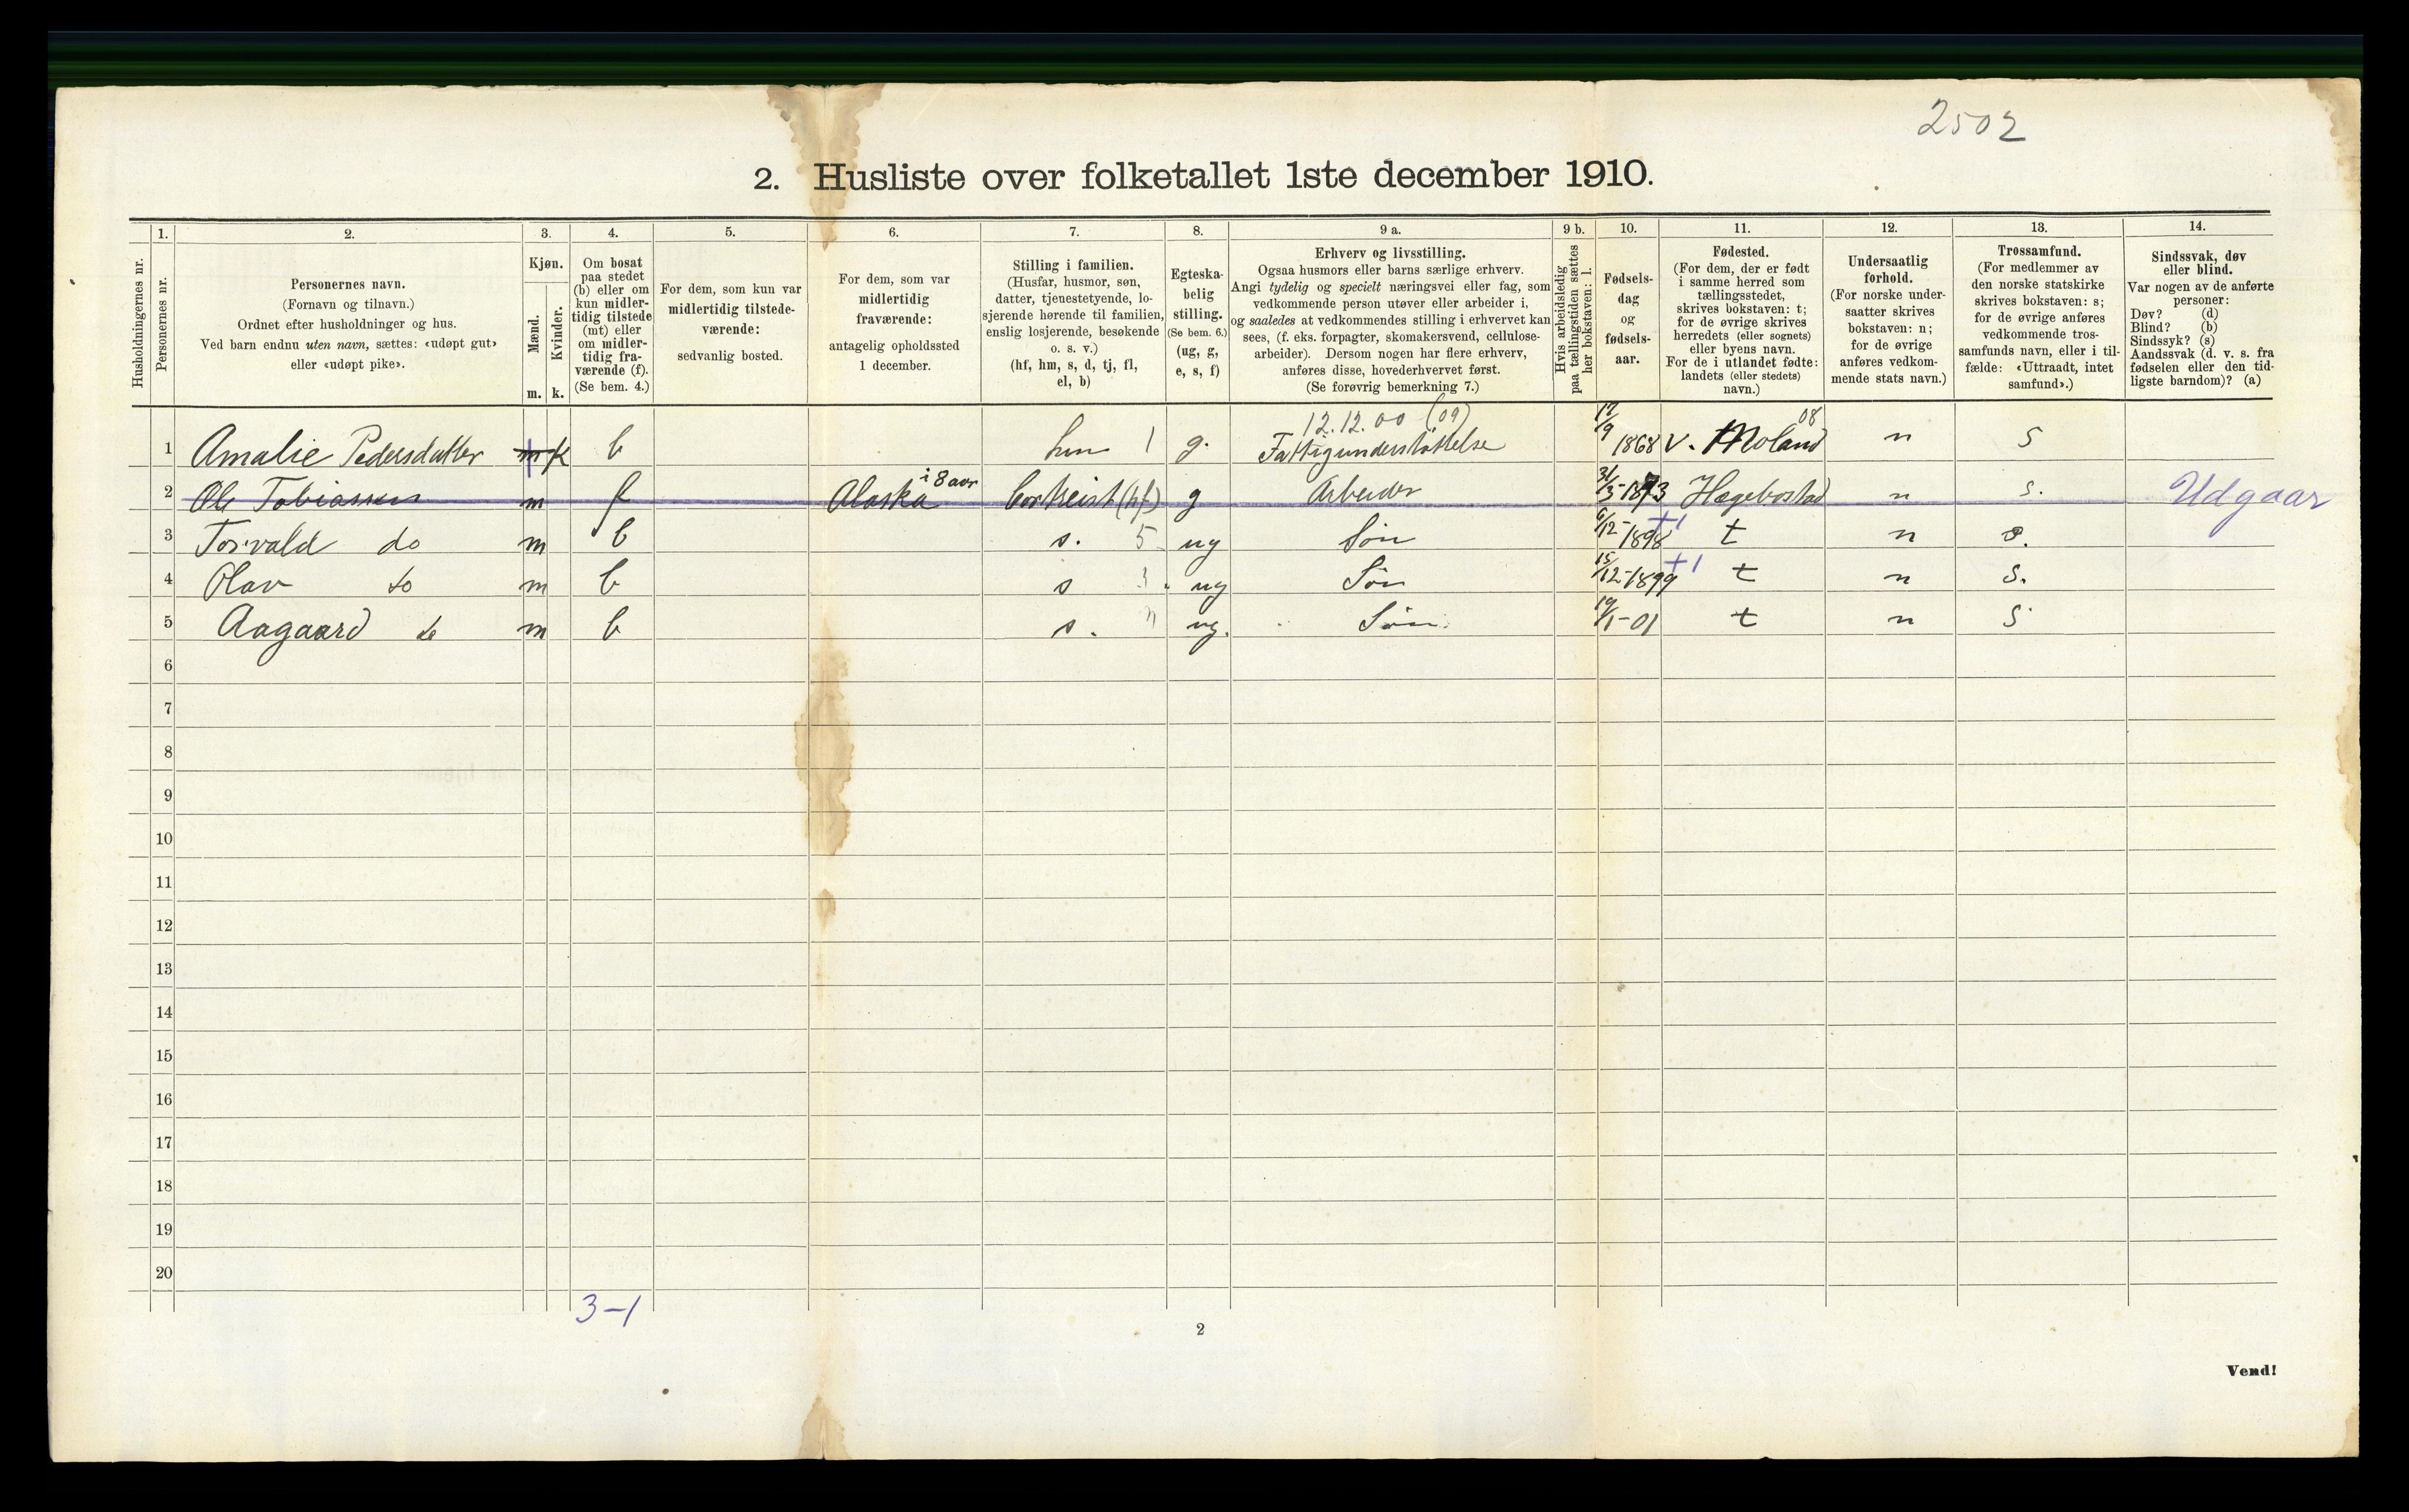 2502
2. Husliste over folketallet 1ste december 1910.
Husholdningernes nr.
1.
Personernes nr.
2.
Personernes navn.
(Fornavn og tilnavn.)
Ordnet efter husholdninger og hus.
Ved barn endnu uten navn, sættes: «udøpt gut»
eller «udøpt pike».
3.
Kjøn.
Mænd.
Kvinder.
m. k.
4.
Om bosat
paa stedet
(b) eller om
kun midler-
tidig tilstede
(mt) eller
om midler-
tidig fra-
værende (f).
(Se bem. 4.)
5.
For dem, som kun var
midlertidig tilstede-
værende:
sedvanlig bosted.
6.
For dem, som var
midlertidig
fraværende:
antagelig opholdssted
1 december.
7.
Stilling i familien.
(Husfar, husmor, søn,
datter, tjenestetyende, lo-
sjerende hørende til familien,
enslig losjerende, besøkende
o. s. v.)
(hf, hm, s, d, tj, fl,
el, b)
8.
Egteska-
belig
stilling.
(Se bem. 6.)
(ug, g,
e, s, f)
9 a.
Erhverv og livsstilling.
Ogsaa husmors eller barns særlige erhverv.
Angi tydelig og specielt næringsvei eller fag, som
vedkommende person utøver eller arbeider i,
og saaledes at vedkommendes stilling i erhvervet kan
sees, (f. eks. forpagter, skomakersvend, cellulose-
arbeider). Dersom nogen har flere erhverv,
anføres disse, hovederhvervet først.
(Se forøvrig bemerkning 7.)
9 b.
Hvis arbeidsledig
paa tællingstiden sættes
her bokstaven: l.
10.
Fødsels-
dag
og
fødsels-
aar.
11.
Fødested.
(For dem, der er født
i samme herred som
tællingsstedet,
skrives bokstaven: t;
for de øvrige skrives
herredets (eller sognets)
eller byens navn.
For de i utlandet fødte:
landets (eller stedets)
navn.)
12.
Undersaatlig
forhold.
(For norske under-
saatter skrives
bokstaven: n;
for de øvrige
anføres vedkom-
mende stats navn.)
13.
Trossamfund.
(For medlemmer av
den norske statskirke
skrives bokstaven: s;
for de øvrige anføres
vedkommende tros-
samfunds navn, eller i til-
fælde: «Uttraadt, intet
samfund».)
14.
Sindssvak, døv
eller blind.
Var nogen av de anførte
personer:
Døv? (d)
Blind? (b)
Sindssyk? (s)
Aandssvak (d. v. s. fra
fødselen eller den tid-
ligste barndom)? (a)
12.12.00 (09) 08
1 Amalie Pedersdatter m k b hm 1 g. Fattigunderstøttelse 17/9 1868 V. Moland n s
2 Ole Tobiassen m f Alaska i 8 aar bortreist (hf) g Arbeider 31/3-1873 Hægebostad n s. Udgaar
3 Torvald do m b s. 5 ug Søn 6/12-1898 +1 t n s.
4 Olav do m b s ug Søn 15/12-1899 +1 t n s.
5 Aagaard do m b s. ug. Søn 19/1-01 t n s
6
7
8
9
10
11
12
13
14
15
16
17
18
19
20
3-1
2
Vend!